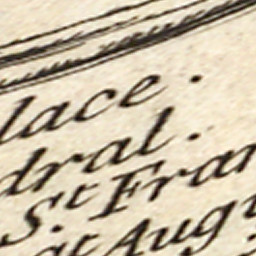 lace.
dral.
S.t Fran
at Augu